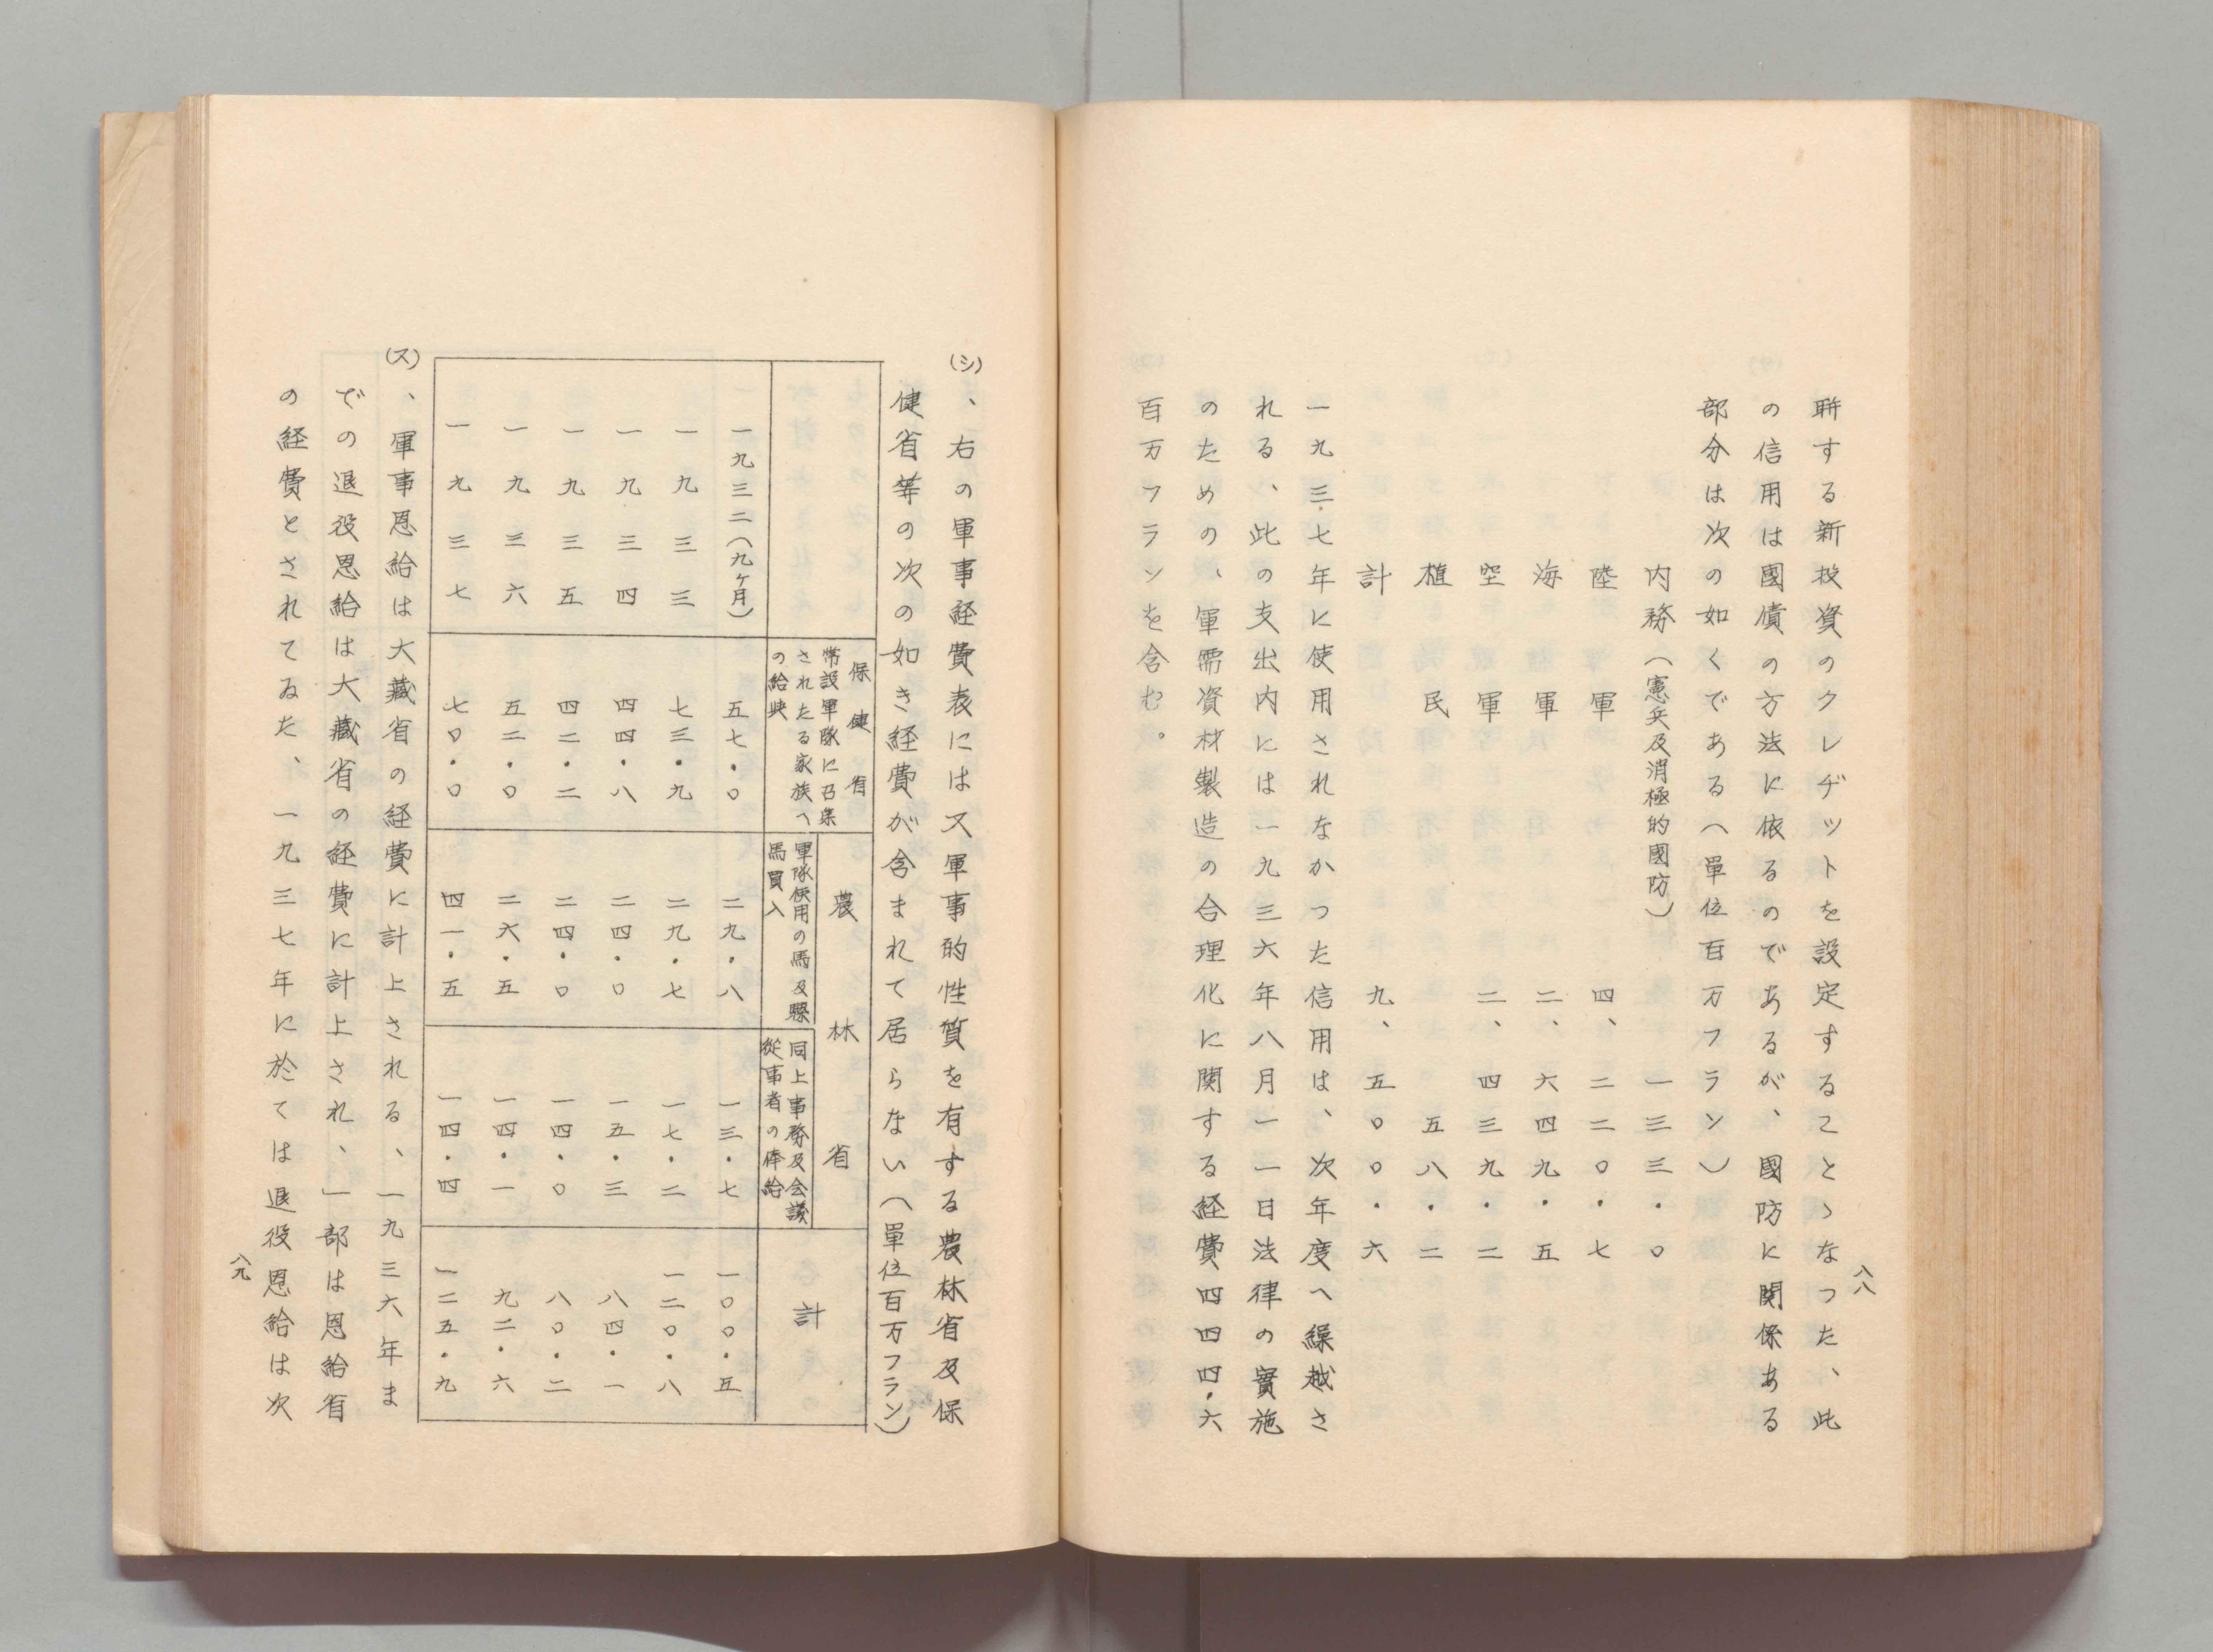 八八
聨する新投資のクレヂットを設定することゝなつた、此
の信用は國債の方法に依るのであるが、國防に関係ある
部分は次の如くである(單位百万フラン)
内務(憲兵及消極的國防) 一三三・〇
陸軍 四、二二〇・七
海軍 二、六四九・五
空軍 二、四三九・二
植民 五八・二
計 九、五〇〇・六
一九三七年に使用されなかつた信用は、次年度へ繰越さ
れる、此の支出内には一九三六年八月一一日法律の實施
のための、軍需資材製造の合理化に関する経費四四四・六
百万フランを含む。
(シ)、右の軍事経費表には又軍事的性質を有する農林省及保
健省等の次の如き経費が含まれて居らない(單位百万フラン)
保健省
常設軍隊に召集
されたる家族へ
の給與
農林省
軍隊使用の馬及騾
馬買入
同上事務及会議
從事者の俸給
計
一九三二(九ヶ月) 五七・〇 二九・八 一三・七 一〇〇・五
一九三三 七三・九 二九・七 一七・二 一二〇・八
一九三四 四四・八 二四・〇 一五・三 八四・一
一九三五 四二・二 二四・〇 一四・〇 八〇・二
一九三六 五二・〇 二六・五 一四・一 九二・六
一九三七 七〇・〇 四一・五 一四・四 一二五・九
(ス)、軍事恩給は大藏省の経費に計上される、一九三六年ま
での退役恩給は大藏省の経費に計上され、一部は恩給省
の経費とされてゐた、一九三七年に於ては退役恩給は次
八九